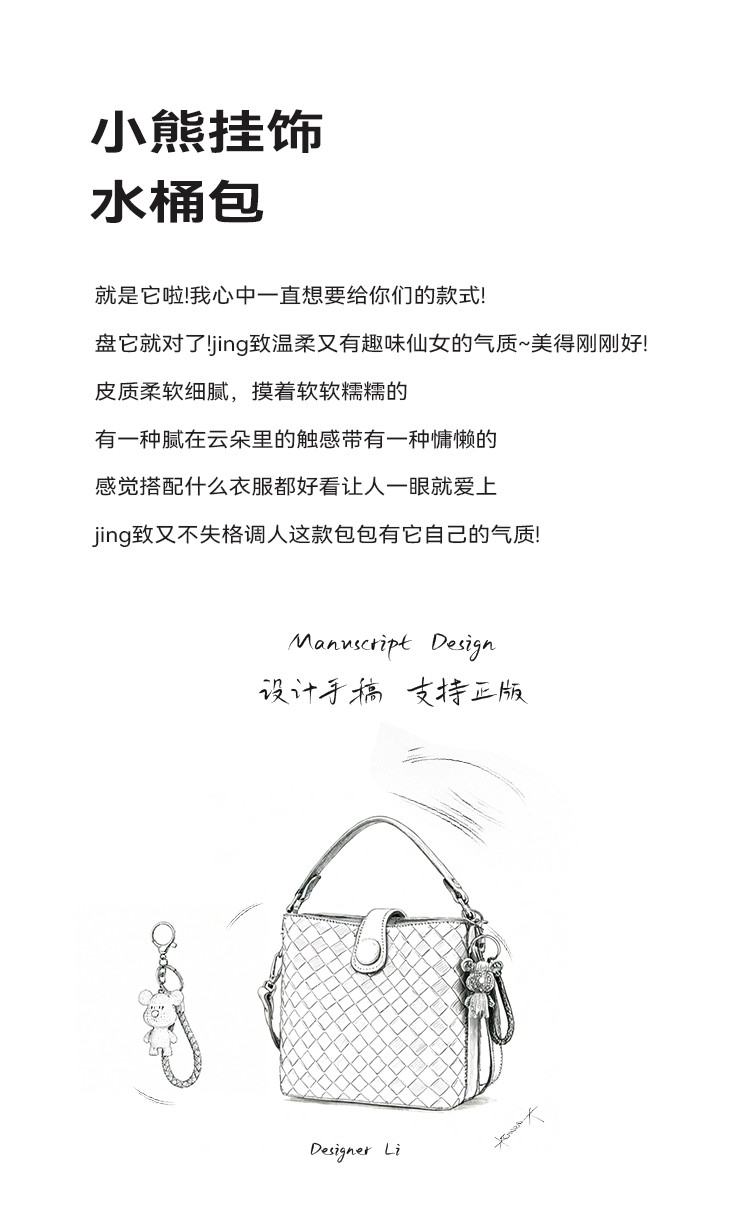 小熊挂饰
水桶包
就是它啦!我心中一直想要给你们的款式!
盘它就对了!jing致温柔又有趣味仙女的气质~美得刚刚好!
皮质柔软细腻，摸着软软糯糯的
有一种腻在云朵里的触感带有一种慵懒的
感觉搭配什么衣服都好看让人一眼就爱上
jing致又不失格调人这款包包有它自己的气质!
Manuscript Design
设计手稿 支持正版
Designer Li